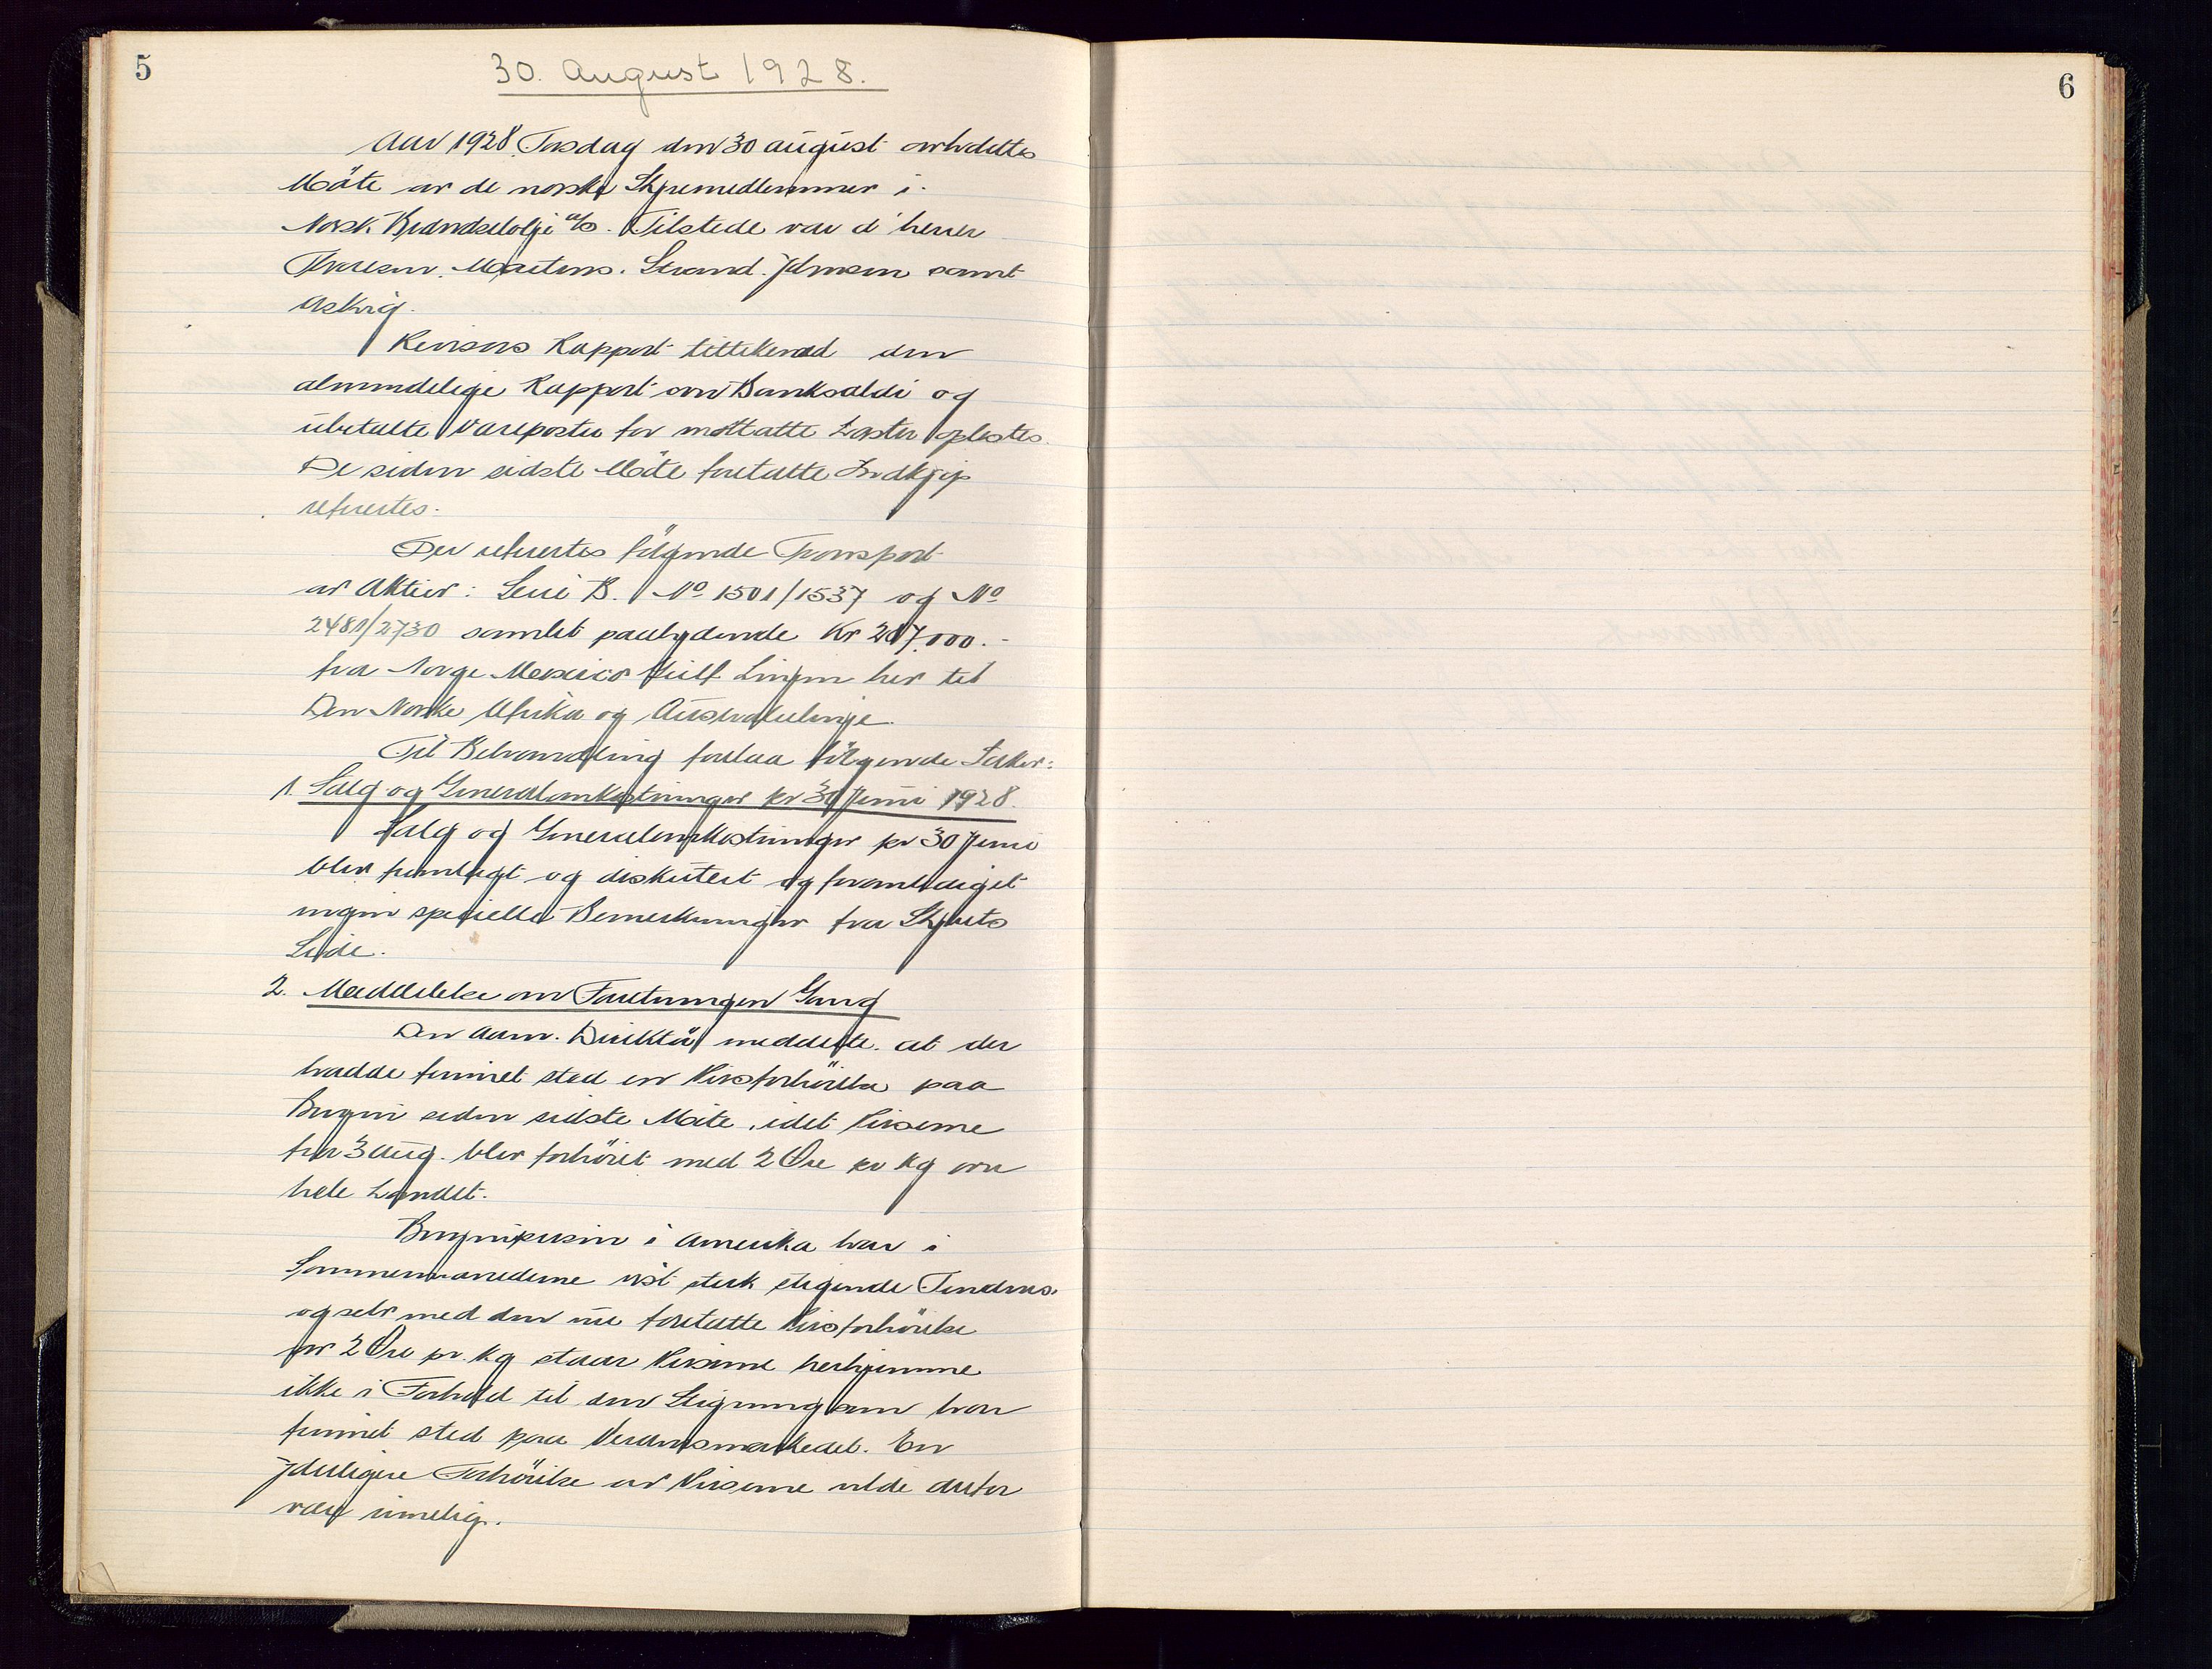 5
30. August 1928.
Aar 1928 Torsdag den 30 august avholdttes
Møte av de norske Styremedlemmer i
Norsk Brændselolje a/s. Tilstede var d'herrer
Thoresen. Mertens. Strand. Johnsen samt
Askvig.
Revisors Rapport tillikemed den
almindelige Rapport om Banksaldi og
ubetalte Vareposter for mottatte Laster oplestes.
De siden sidste Møte foretatte Indkjøp
refertes.
Der refertes følgende Transport
av Aktier: Serie B. No 1501/1537 og No
2481/2730 samlet paalydende Kr 287.000.-
fra Norge Mexico Gulf Linjen her til
Den Norske Afrika og Australielinje.
Til Behandling forelaa følgende Saker:
1. Salg og Generalomkostninger pr 30 Juni 1928.
Salg og Generalomkostninger pr 30 Juni
blev fremlagt og diskutert og foranlediget
ingen specielle Bemerkninger fra Styrets
Side.
2. Meddelelse om Forretningens Gang
Den adm. Direktør meddelte. at der
hadde funnet sted en Prisforhøielse paa
Bensin siden sidste Møte, idet Priserne
fra 3 Aug. blev forhøiet med 2 Øre pr Kg over
hele Landet.
Bensinprisen i Amerika har i
Sommermanederne vist sterk stigende Tendens.
og selv med den nu foretatte Prisforhøielse
av 2 Øre pr. Kg staar Priserne herhjemme
ikke i Forhold til den Stigning som har
funnet sted paa Verdensmarkedet. En
yderligere Forhøielse av Priserne vilde derfor
være rimelig.
6